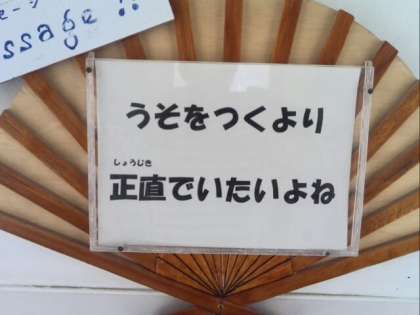 ssage !!
うそをつくより
しょうじき
正直でいたいよね